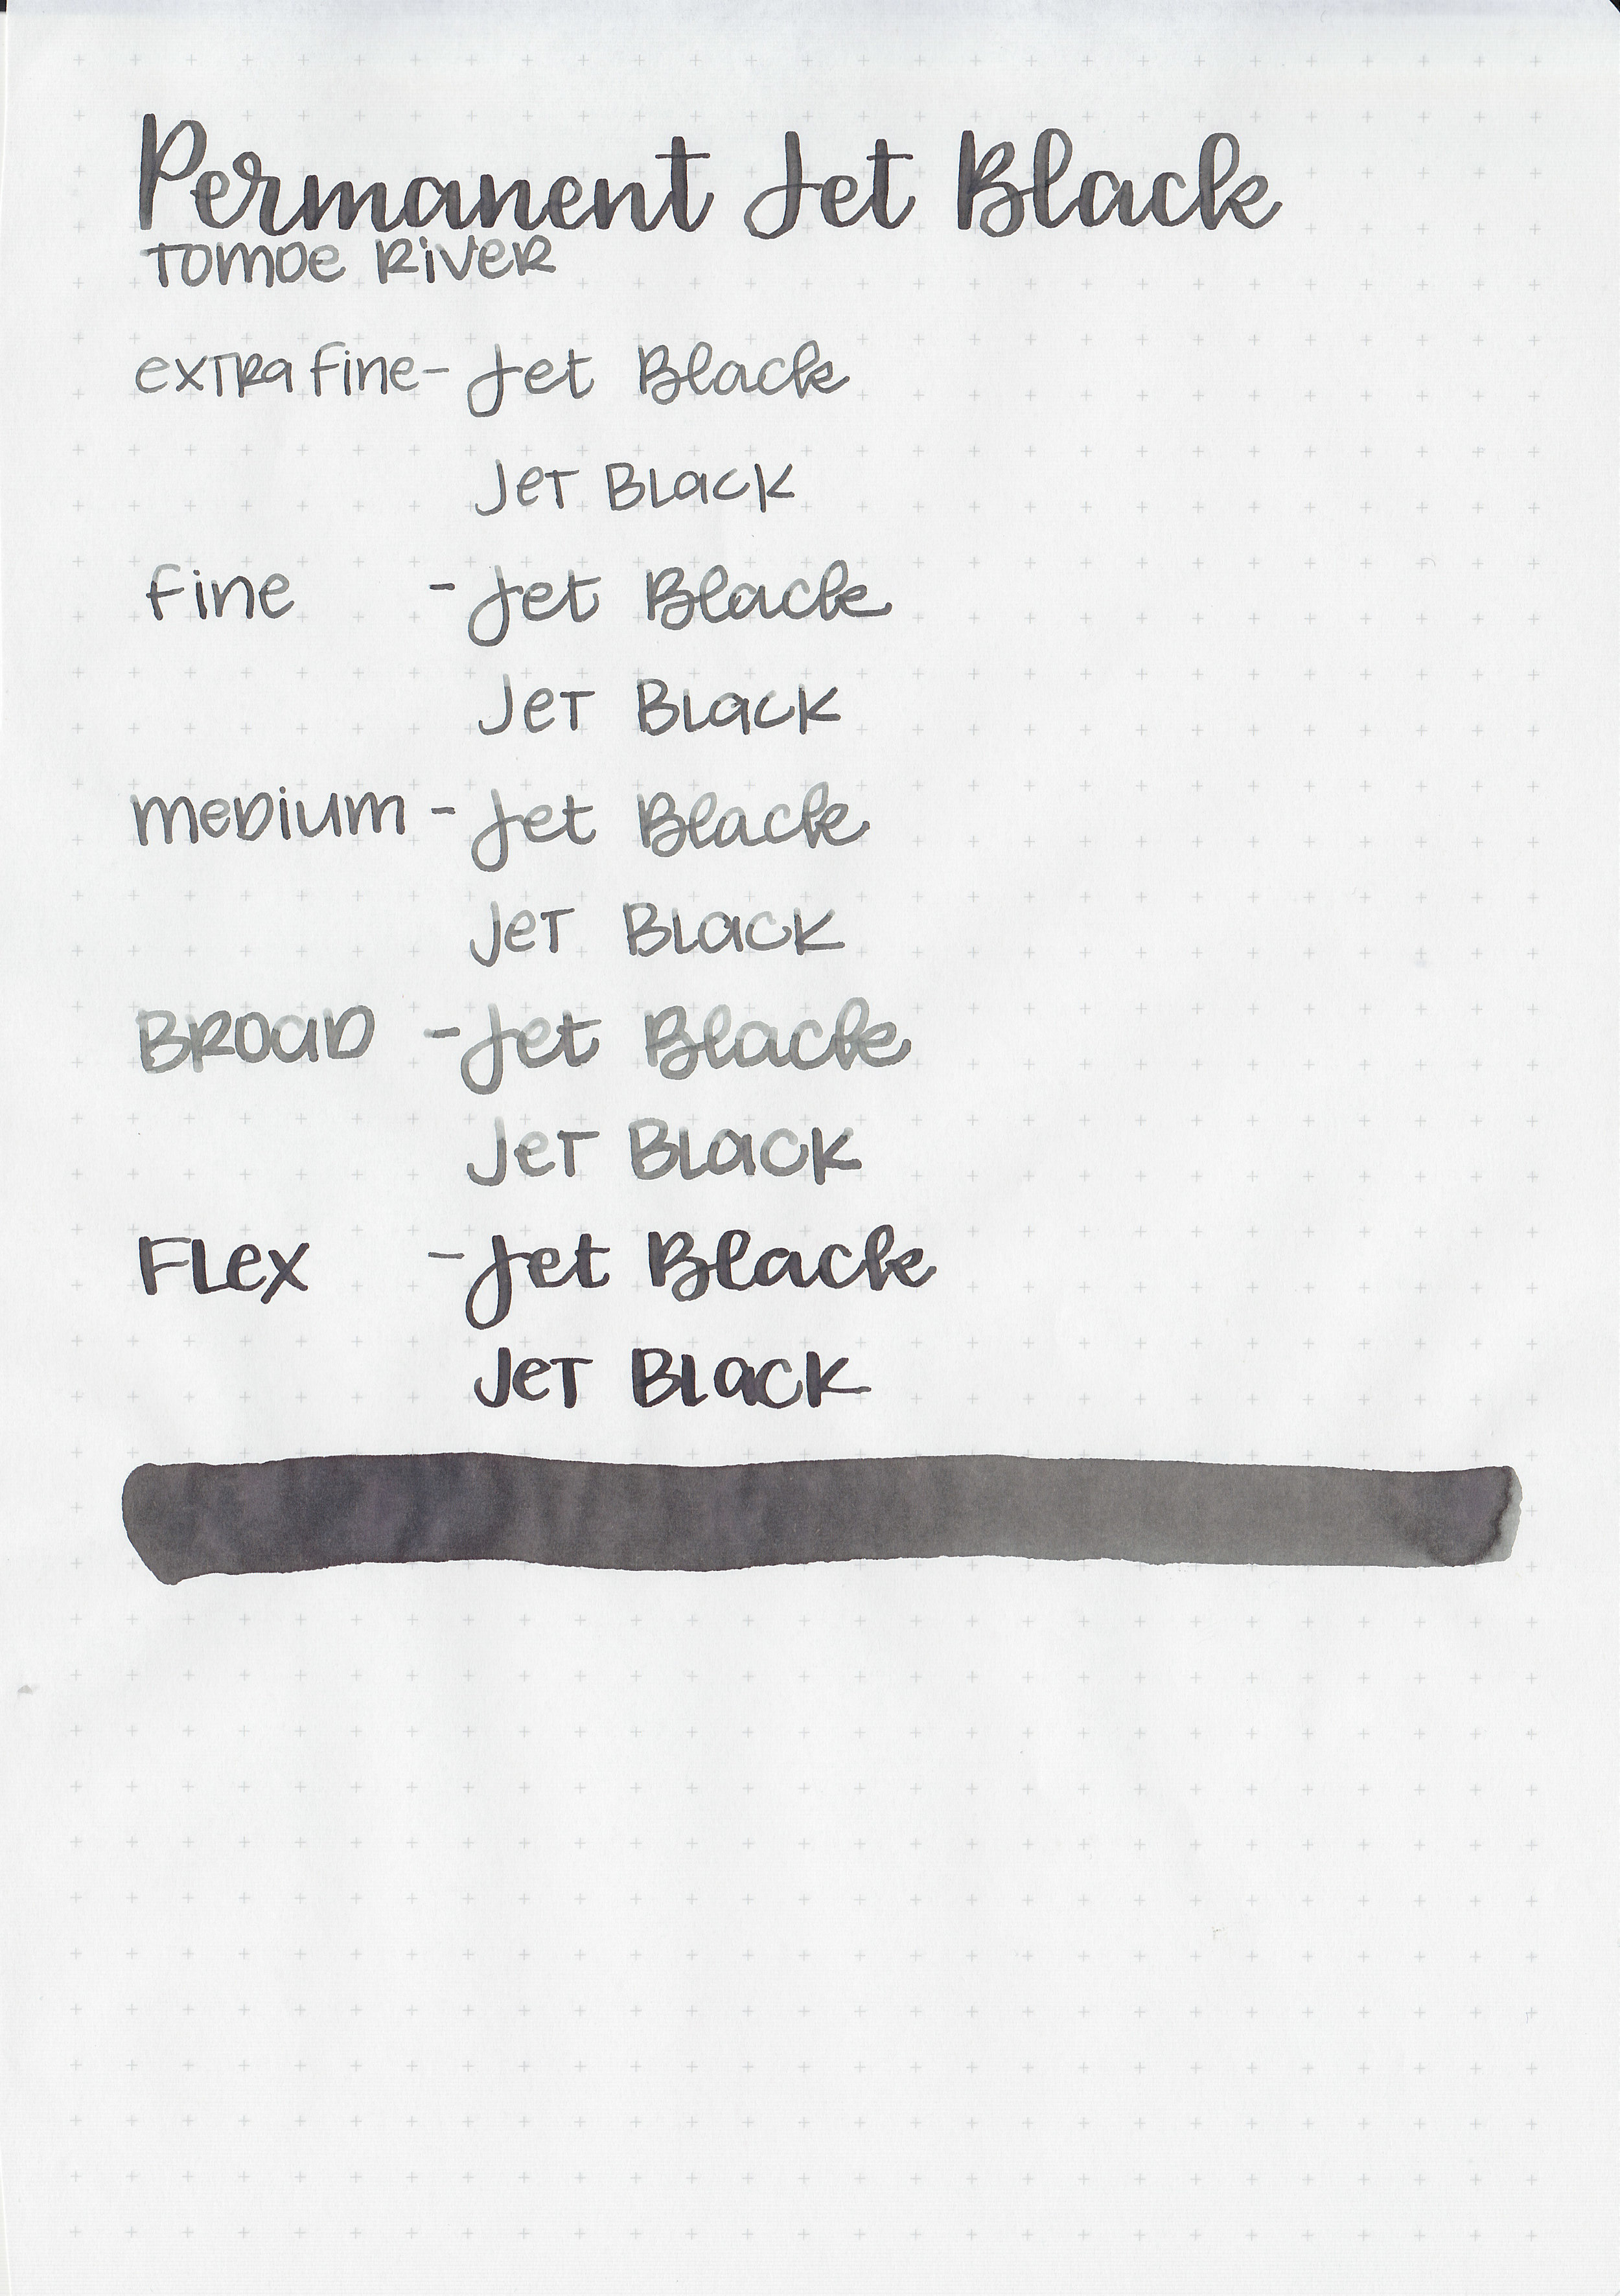 Permanent Jet Black
Tomoe River
extra fine - Jet Black
Jet Black
fine - Jet Black
Jet Black
medium - Jet Black
Jet Black
Broad - Jet Black
Jet Black
Flex - Jet Black
Jet Black